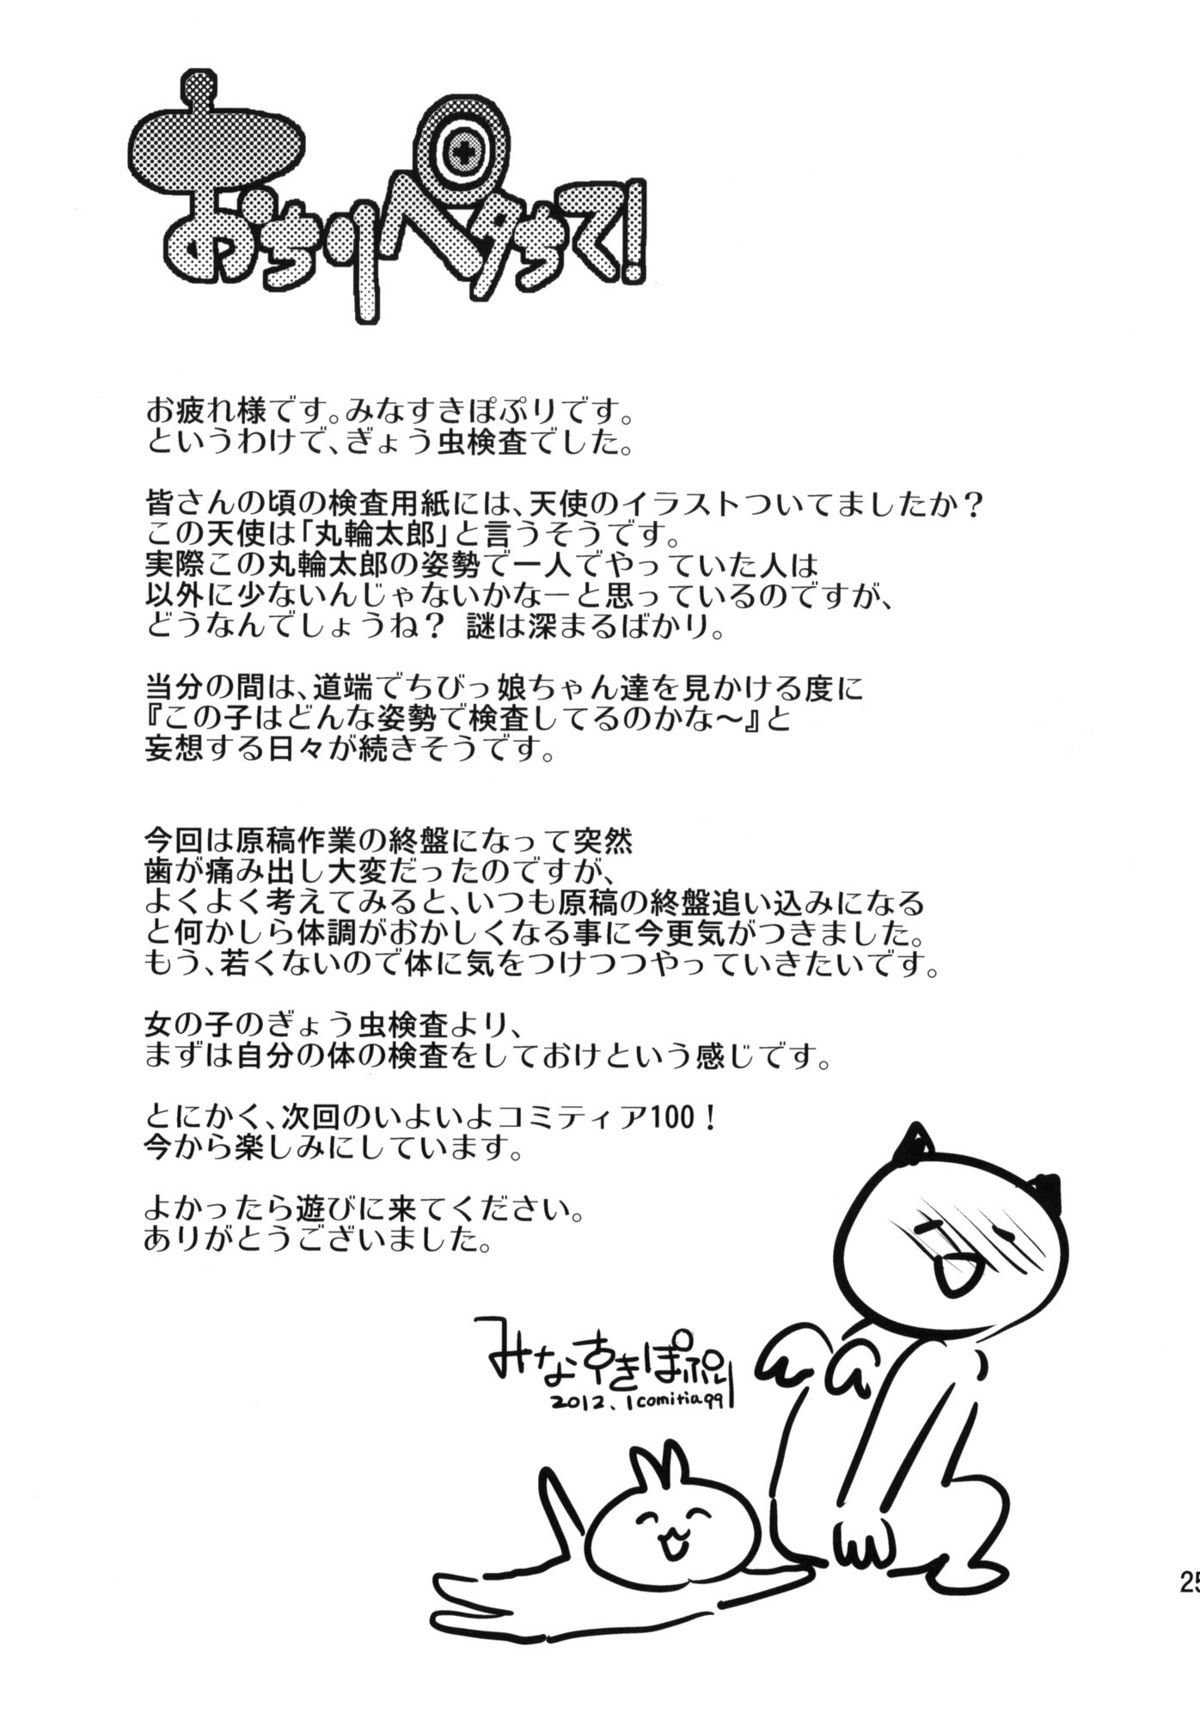 おちりペタちて!
お疲れ様です。みなすきぽぷりです。
というわけで、ぎょう虫検査でした。
皆さんの頃の検査用紙には、天使のイラストついてましたか?
この天使は「丸輪太郎」と言うそうです。
実際この丸輪太郎の姿勢で一人でやっていた人は
以外に少ないんじゃないかなーと思っているのですが、
どうなんでしょうね? 謎は深まるばかり。
当分の間は、道端でちびっ娘ちゃん達を見かける度に
『この子はどんな姿勢で検査してるのかな〜』と
妄想する日々が続きそうです。
今回は原稿作業の終盤になって突然
歯が痛み出し大変だったのですが、
よくよく考えてみると、いつも原稿の終盤追い込みになる
と何かしら体調がおかしくなる事に今更気がつきました。
もう、若くないので体に気をつけつつやっていきたいです。
女の子のぎょう虫検査より、
まずは自分の体の検査をしておけという感じです。
とにかく、次回のいよいよコミティア100!
今から楽しみにしています。
よかったら遊びに来てください。
ありがとうございました。
みなすきぽぷり
2012.1comitia99
25